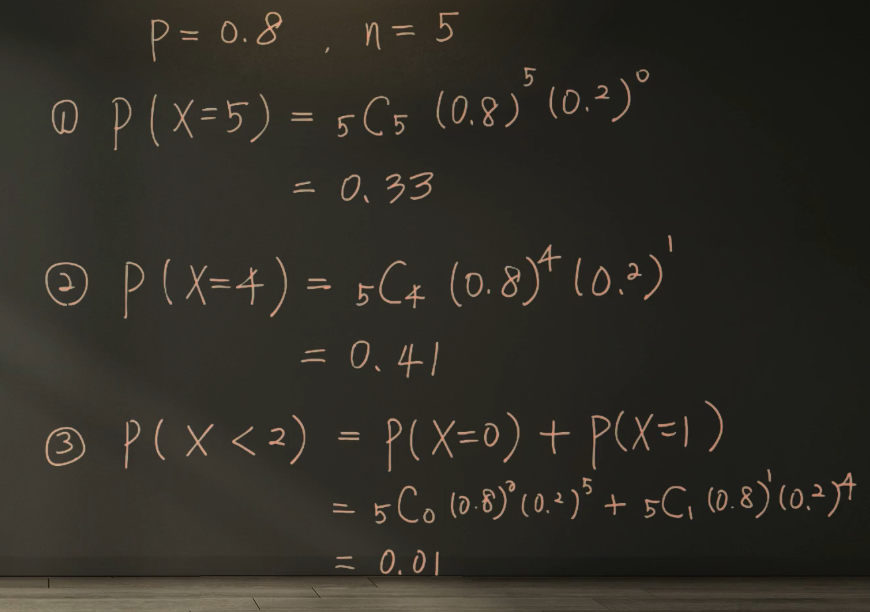 P = 0.8 , n = 5
① P(X=5) = ₅C₅ (0.8)⁵ (0.2)⁰
= 0.33
② P(X=4) = ₅C₄ (0.8)⁴ (0.2)¹
= 0.41
③ P(X<2) = P(X=0) + P(X=1)
= ₅C₀ (0.8)⁰ (0.2)⁵ + ₅C₁ (0.8)¹ (0.2)⁴
= 0.01